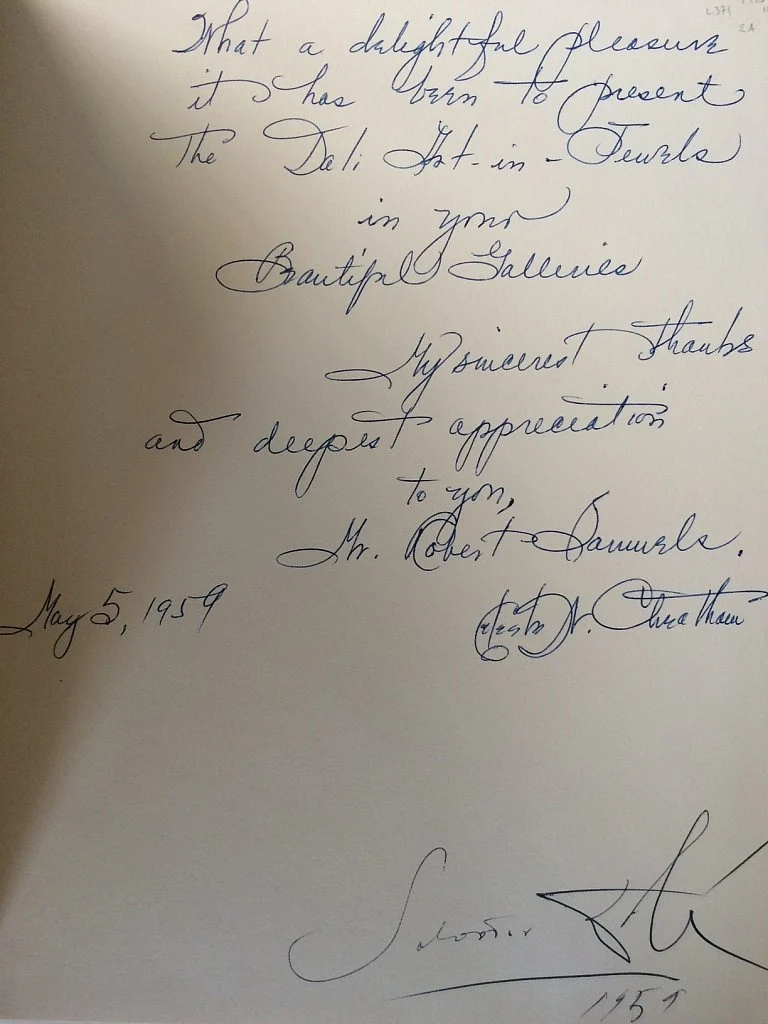 What a delightful pleasure
it has been to present
The Dali Art-in-Jewels
in your
Beautiful Galleries
My sincerest thanks
and deepest appreciation
to you,
Mr. Robert Samuels.
May 5, 1959
N. Cheatham
Salvador Dalí
1959